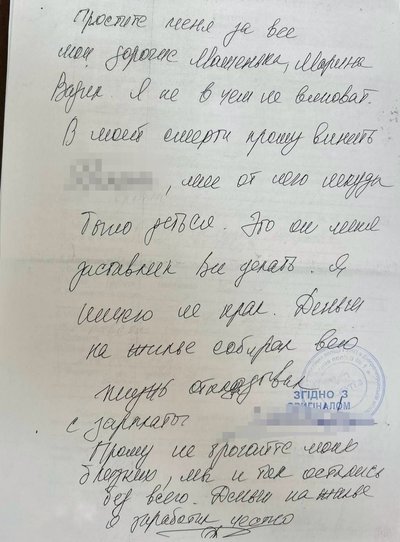 Простите меня за все
мои дорогие Машенька, Марина
Вадик. Я не в чем не виноват.
В моей смерти прошу винить
, мне от него некуда
было деться. Это он меня
заставлял все делать. Я
ничего не крал. Деньги
на жилье собирал всю
жизнь откладывал
с зарплаты
ЗГІДНО З
ОРИГІНАЛОМ
Прошу не трогайте мою
, мы и так остались
без всего. Деньги на жилье
я заработал честно